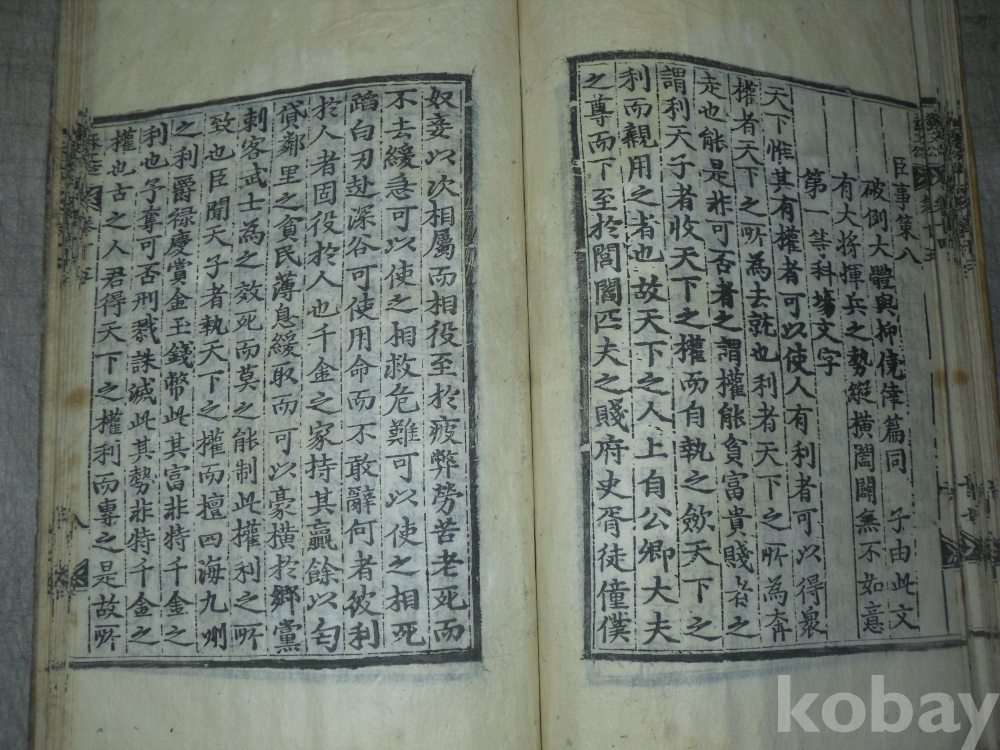 臣事策八
破倒大體與抑僥倖篇同 子由此文
有大將揮兵之勢縱橫闔闢無不如意
第一等科場文字
天下惟其有權者可以使人有利者可以得衆
權者天下之所為去就也利者天下之所為奔
走也能是非可否者之謂權能貧富貴賤者之
謂利天子者收天下之權而自執之歛天下之
利而親用之者也故天下之人上自公卿大夫
之尊而下至於閭閻匹夫之賤府史胥徒僮僕
奴妾以次相屬而相役至於疲弊勞苦老死而
不去緩急可以使之相救危難可以使之相死
蹈白刃赴深谷可使用命而不敢辭何者彼利
於人者固役於人也千金之家持其贏餘以匄
貸鄰里之貧民薄息緩取而可以豪橫於鄉黨
刺客武士為之效死而莫之能制此權利之所
致也臣聞天子者執天下之權而擅四海九州
之利爵祿慶賞金玉錢幣此其富非特千金之
利也予奪可否刑戮誅滅此其勢非特千金之
權也古之人君得天下之權利而專之是故所
八
kobay